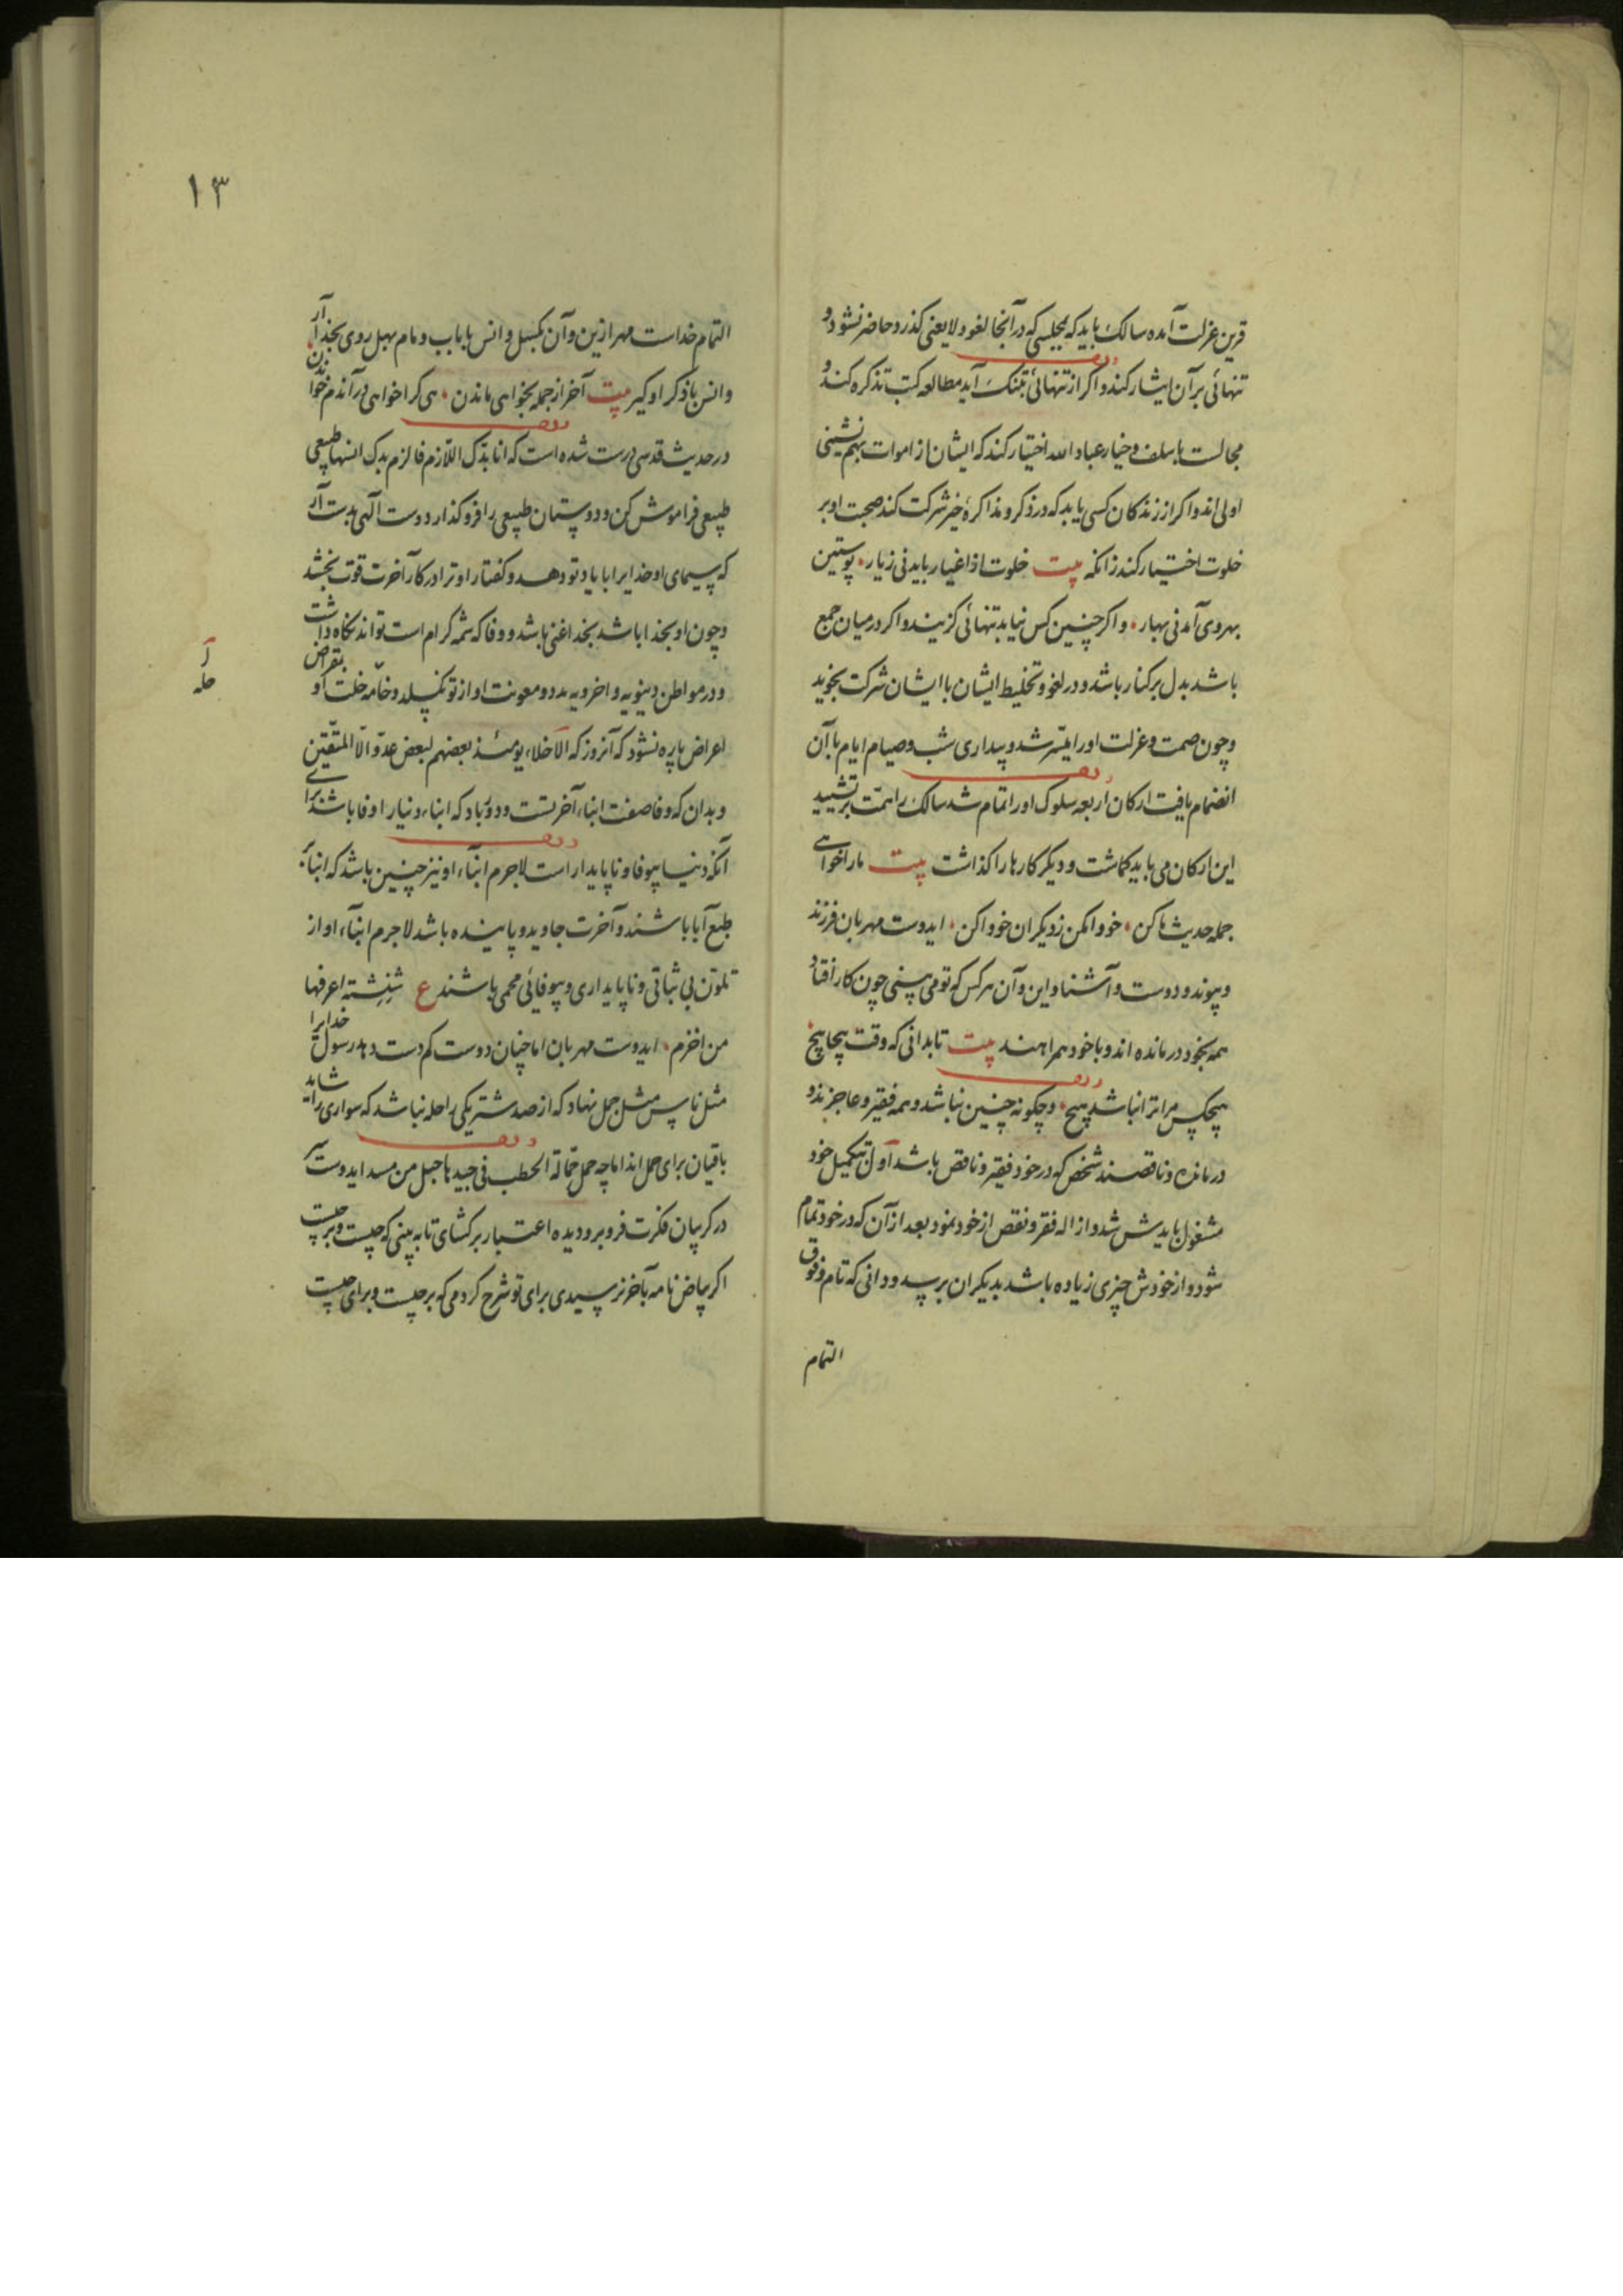 قرین عزلت آمده سالک باید که بمجلسی که در آنجا لغو و لایعنی کذرد حاضر نشود و
تنهائی بر آن ایثار کند و اکر از تنهائی بتنک آید مطالعه کتب تذکره کند و
مجالست با سلف و خیار عباد الله اختیار کند که ایشان از اموات بهم نشینی
اولی اند و اکر از زندکان کسی یابد که در ذکر و مذاکرهٔ خیر شرکت کند صحبت او بر
خلوت اختیار کند زانکه بیت خلوت از اغیار باید نی ز یار • پوستین
بهر وی آمد نی بهار • و اکر چنین کس نیابد تنهائی کزیند و اکر در میان جمع
باشد بدل بر کنار باشد و در لغو و تخلیط ایشان با ایشان شرکت نجوید
و چون صمت و عزلت او را میسّر شد و بیداری شب و صیام ایام با آن
انضمام یافت ارکان اربعه سلوک او را تمام شد سالک را همّت بر تشیید
این ارکان می باید کماشت و دیکر کارها را کذاشت بیت ما را خواهی
جمله حدیث ما کن • خو واکمن ز دیکران خو واکن • ایدوست مهربان فرزند
و پیوند و دوست و آشنا و این و آن هر کس که تو می بینی چون کار افتاد
همه بخود درمانده اند و با خود همراهند بیت تا بدانی که وقت پیچا پیچ
هیچکس مر ترا نباشد هیچ • و چکونه چنین نباشد و همه فقیر و عاجزند و
درمانده و ناقصند شخص که در خود فقیر و ناقص باشد اول بتکمیل خود
مشغول بایدش شد و ازاله فقر و نقص از خود نمود بعد از آن که در خود تمام
شود و از خودش چیزی زیاده باشد بدیکران برسد و دانی که تام و فوق
التمام
١٣
التمام خداست مهر ازین و آن بکسل و انس با باب و مام بهل روی بخدا آر
و انس با ذکر او کیر بیت آخر از جمله بخواهی ماندن • هی کرا خواهی در آندم خواندن
در حدیث قدسی درست شده است که انا بدّک اللّازم فالزم بدّک انسهای طبیعی
طبیعی فراموش کن و دوستان طبیعی را فرو کذار دوست آلهی بدست آر
که سیمای او خدایرا با یاد تو دهد و کفتار او ترا در کار آخرت قوت بخشد
و چون او بخدا باشد بخدا غنی باشد و وفا که شمه کرام است تواند نکاه داشت
و در مواطن دنیویه و اخرویه مدد و معونت او از تو نکسلد و جامه خلت او بمقراض
اعراض پاره نشود که آنروز که الاخلاء یومئذ بعضهم لبعض عدوّ الّا المتّقین
و بدان که وفا صفت ابناء آخرتست و دور باد که ابناء دنیا را وفا باشد برای
آنکه دنیا بیوفا و ناپایدار است لاجرم ابناء او نیز چنین باشد که ابنا بر
طبع آبا باشند و آخرت جاوید و پاینده باشد لاجرم ابناء او از
تلون بی ثباتی و ناپایداری و بیوفائی محمی باشند ع شنشنة اعرفها
من اخزم • ایدوست مهربان اما چنان دوست کم دست دهد رسول خدایرا
مثل ناس مثل جمل نهاد که از صد شتر یکی راحله نباشد که سواری را شاید
باقیان برای حمل اند اما چه حمل حمّالة الحطب فی جیدها حبل من مسد ایدوست سر
در کریبان فکرت فرو بر و دیده اعتبار بر کشای تا به بینی که چیست و بر چیست
اکر بیاض نامه بآخر نرسیدی برای تو شرح کردمی که بر چیست و برای چیست